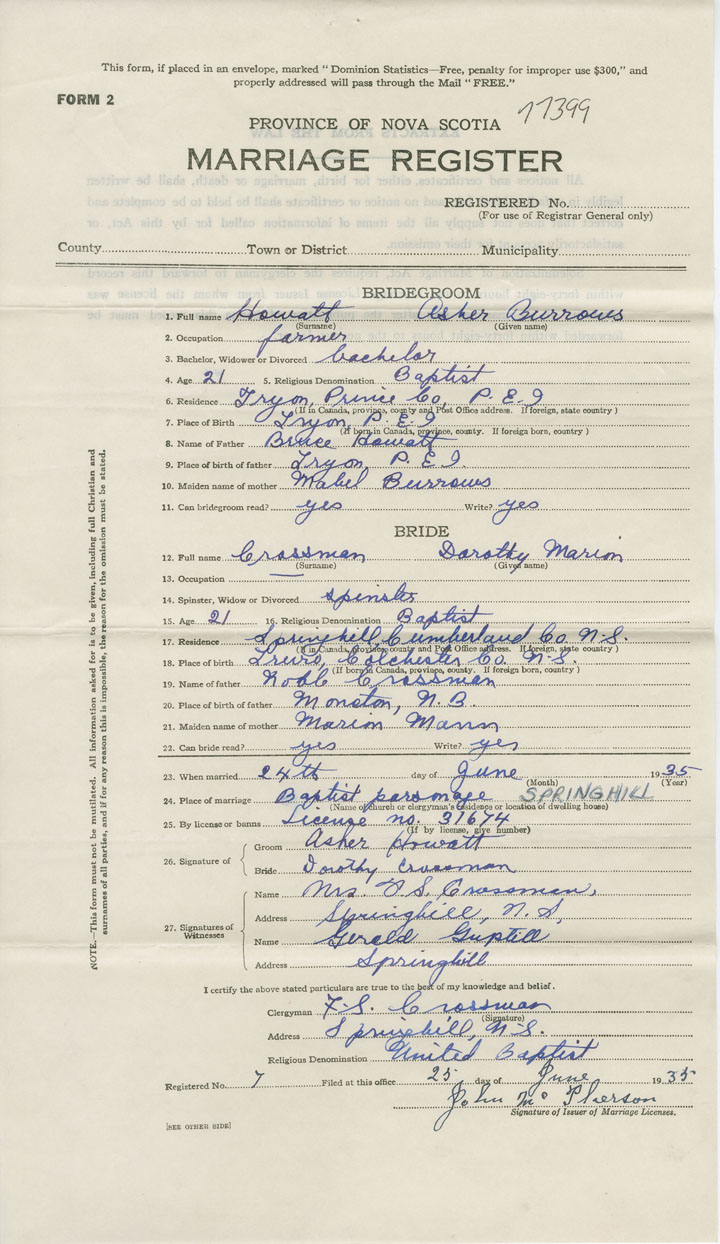 This form, if placed in an envelope, marked "Dominion Statistics—Free, penalty for improper use $300," and
properly addressed will pass through the Mail "FREE."
FORM 2
17399
PROVINCE OF NOVA SCOTIA
MARRIAGE REGISTER
REGISTERED No.
(For use of Registrar General only)
County Town or District Municipality
BRIDEGROOM
1. Full name Howatt Asher Burrows
(Surname) (Given name)
2. Occupation farmer
3. Bachelor, Widower or Divorced bachelor
4. Age 21 5. Religious Denomination Baptist
6. Residence Tryon, Prince Co, P.E.I
(If in Canada, province, county and Post Office address. If foreign, state country)
7. Place of Birth Tryon, P.E.I
(If born in Canada, province, county. If foreign born, country)
8. Name of Father Bruce Howatt
9. Place of birth of father Tryon P.E.I.
10. Maiden name of mother Mabel Burrows
11. Can bridegroom read? yes Write? yes
BRIDE
12. Full name Crossman Dorothy Marion
(Surname) (Given name)
13. Occupation —
14. Spinster, Widow or Divorced spinster
15. Age 21 16. Religious Denomination Baptist
17. Residence Springhill, Cumberland Co N.S.
(If in Canada, province county and Post Office address. If foreign, state country)
18. Place of birth Truro, Colchester Co. N.S.
(If born in Canada, province, county. If foreign born, country)
19. Name of father Crossman
20. Place of birth of father Moncton, N.B.
21. Maiden name of mother Marion Mann
22. Can bride read? yes Write? yes
23. When married 24th day of June 1935
(Month) (Year)
24. Place of marriage Baptist parsonage SPRINGHILL
(Name of church or clergyman's residence or location of dwelling house)
25. By license or banns License no. 31674
(If by license, give number)
26. Signature of Groom Asher Howatt
Bride Dorothy Crossman
27. Signatures of Witnesses Name Mrs. F.S. Crossman,
Address Springhill, N.S,
Name Gerald Guptill
Address Springhill
I certify the above stated particulars are true to the best of my knowledge and belief.
Clergyman F.S. Crossman
(Signature)
Address Springhill, N.S.
Religious Denomination United Baptist
Registered No. 7 Filed at this office 25 day of June 1935
John McPherson
Signature of Issuer of Marriage Licenses.
[SEE OTHER SIDE]
NOTE.—This form must not be mutilated. All information asked for is to be given, including full Christian and
surnames of all parties, and if for any reason this is impossible, the reason for the omission must be stated.